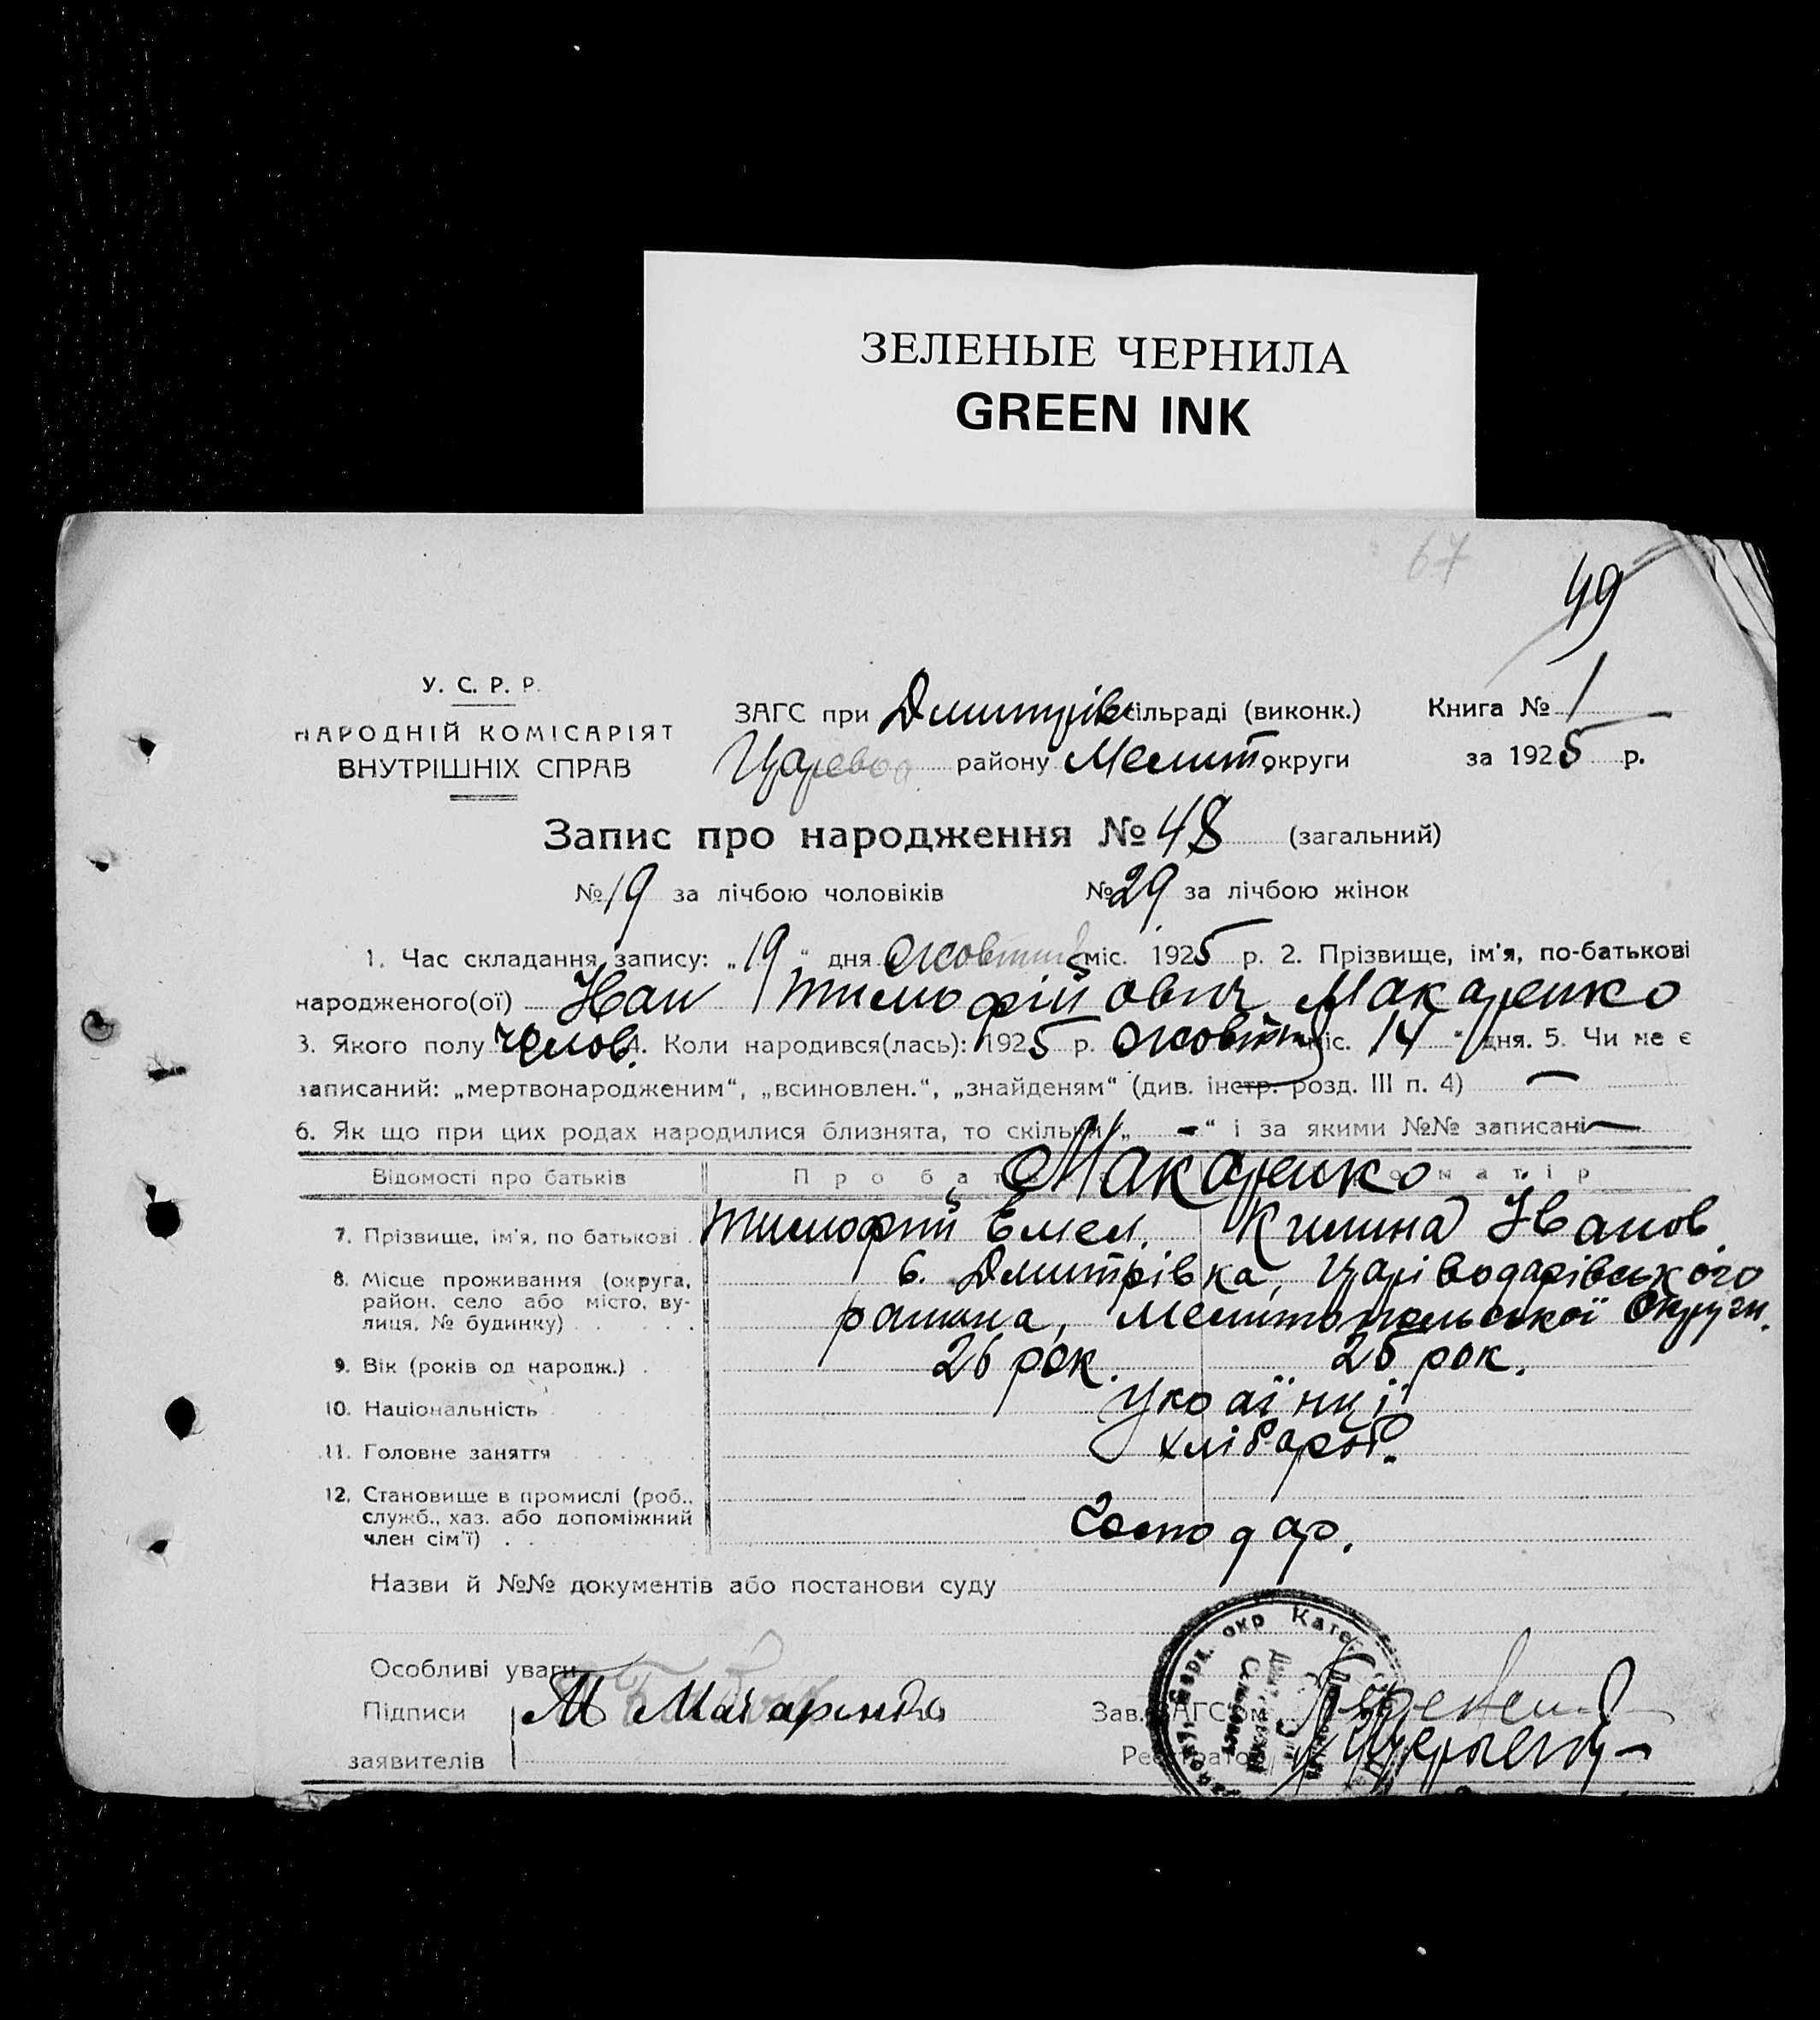 ЗЕЛЕНЫЕ ЧЕРНИЛА
GREEN INK
67
49
У. С. Р. Р.
НАРОДНІЙ КОМІСАРІЯТ
ВНУТРІШНІХ СПРАВ
ЗАГС при Дмитрів сільраді (виконк.) Книга № 1
Царевод району Мелит. округи за 1925 р.
Запис про народження № 48 (загальний)
№ 19 за лічбою чоловіків № 29 за лічбою жінок
1. Час складання запису: „19“ дня жовтня міс. 1925 р. 2. Прізвище, ім'я, по-батькові
народженого(ої) Іван Тимофійович Макаренко
3. Якого полу челов. 4. Коли народився(лась): 1925 р. жовтн міс. 14 „ дня. 5. Чи не є
записаний: „мертвонародженим“, „всиновлен.“, „знайденям“ (див. інстр. розд. III п. 4) —
6. Як що при цих родах народилися близнята, то скільки „ - “ і за якими №№ записані —
Відомості про батьків Про бат Макаренко о матір
7. Прізвище, ім'я, по батькові . Тимофій Емел. Килина Іванов.
8. Місце проживання (округа, с. Дмитрівка, Царіводарівського
район, село або місто, ву- району, Мелитопольської Округи.
лиця, № будинку) . . . . .
9. Вік (років од народж.) . 26 рок. 26 рок.
10. Національність Українці
11. Головне заняття хлібороб.
12. Становище в промислі (роб.,
служб., хаз. або допоміжний
член сім'ї) . . Господар.
Назви й №№ документів або постанови суду
Особливі уваги
Підписи М Макаринко Зав. ЗАГС'ом
заявителів Реєстратор